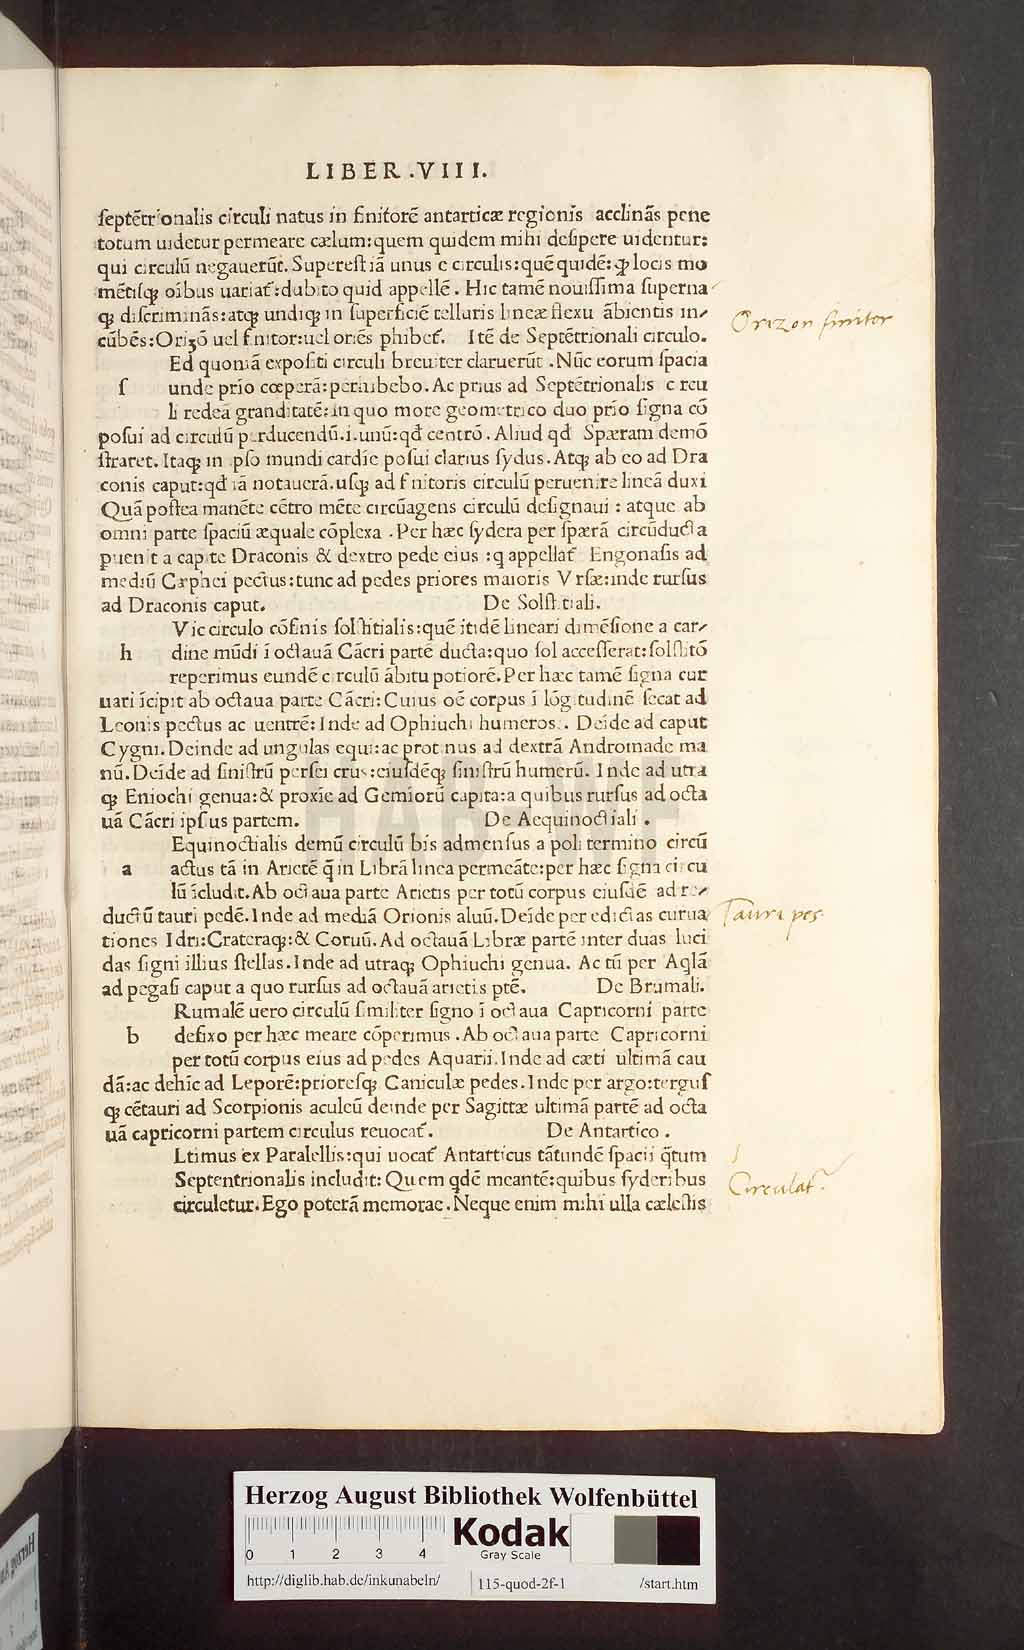 LIBER .VIII.
ſeptẽtrionalis circuli natus in finitorẽ antarticæ regionis acclinãs pene
totum uidetur permeare cælum:quem quidem mihi deſipere uidentur:
qui circulũ negauerũt. Supereſt iã unus e circulis:quẽ quidẽ:ꝓ locis mo
mẽtiſq; oĩbus uariat᷑:dubito quid appellẽ. Hic tamẽ nouiſſima ſuperna
q; diſcriminãs:atq; undiq; in ſuperficiẽ telluris lineæ flexu ãbientis in⸗
cũbẽs:Oriʒõ uel finitor:uel oriẽs phibet᷑. Itẽ de Septẽtrionali circulo.
Orizon finitor
Ed quoniã expoſiti circuli breuiter claruerũt .Nũc eorum ſpacia
ſ unde prio cœperã:perhibebo. Ac prius ad Septẽtrionalis circu
li redeã granditatẽ:in quo more geometrico duo prĩo ſigna cõ
poſui ad circulũ perducendũ.i.unũ:qđ centrõ. Aliud qđ Spæram demõ
ſtraret. Itaq; in ipſo mundi cardie poſui clarius ſydus. Atq; ab eo ad Dra
conis caput:qđ iã notauerã.uſq; ad finitoris circulũ peruenire lineã duxi
Quã poſtea manẽte cẽtro mẽte circũagens circulũ deſignaui : atque ab
omni parte ſpaciũ æquale cõplexa .Per hæc ſydera per ſpærã circũducta
puenit a capite Draconis & dextro pede eius :q appellat᷑ Engonaſis ad
mediũ Cæphei pectus:tunc ad pedes priores maioris Vrſæ:inde rurſus
ad Draconis caput. De Solſtitiali.
Vic circulo cõfinis ſolſtitialis:quẽ itidẽ lineari dimẽſione a car⸗
h dine mũdi ĩ octauã Cãcri partẽ ducta:quo ſol acceſſerat:ſolſtitõ
reperimus eundẽ circulũ ãbitu potiorẽ.Per hæc tamẽ ſigna cur
uari ĩcipit ab octaua parte Cãcri:Cuius oẽ corpus ĩ lõgitudinẽ ſecat ad
Leonis pectus ac uentrẽ:Inde ad Ophiuchi humeros. Deĩde ad caput
Cygni.Deinde ad ungulas equi:ac protinus ad dextrã Andromade ma
nũ.Deĩde ad ſiniſtrũ perſei crus:eiuſdẽq; ſiniſtrũ humerũ. Inde ad utra
q; Eniochi genua:& proxĩe ad Gemiorũ capita:a quibus rurſus ad octa
uã Cãcri ipſius partem. De Aequinoctiali .
Equinoctialis demũ circulũ bis admenſus a poli termino circũ
a actus tã in Arietẽ q̃ in Librã linea permeãte:per hæc ſigna circu
lũ ĩcludit.Ab octaua parte Arietis per totũ corpus eiuſdẽ ad re⸗
ductũ tauri pedẽ.Inde ad mediã Orionis aluũ.Deĩde per edictas curua
Tauri pes
tiones Idri:Crateraq;:& Coruũ.Ad octauã Libræ partẽ inter duas luci
das ſigni illius ſtellas.Inde ad utraq; Ophiuchi genua. Ac tũ per Aqlã
ad pegaſi caput a quo rurſus ad octauã arietis ptẽ. De Brumali.
Rumalẽ uero circulũ ſimiliter ſigno ĩ octaua Capricorni parte
b defixo per hæc meare cõperimus .Ab octaua parte Capricorni
per totũ corpus eius ad pedes Aquarii.Inde ad cæti ultimã cau
dã:ac dehĩc ad Leporẽ:prioreſq; Caniculæ pedes.Inde per argo:terguſ
q; cẽtauri ad Scorpionis aculeũ deinde per Sagittæ ultimã partẽ ad octa
uã capricorni partem circulus reuocat᷑. De Antartico .
Ltimus ex Paralellis:qui uocat᷑ Antarticus tãtundẽ ſpacii q̃tum
Septentrionalis includit:Quem qdẽ meantẽ:quibus ſyderibus
Circulat᷑.
circuletur.Ego poterã memorae.Neque enim mihi ulla cæleſtis
HAB-WF
Herzog August Bibliothek Wolfenbüttel
0 1 2 3 4
Kodak
Gray Scale
http://diglib.hab.de/inkunabeln/ 115-quod-2f-1 /start.htm